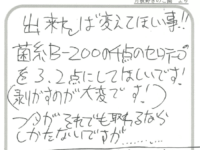 出来れば変えてほしい事!!
菌糸B-200の4点のセロテープ
を3.2点にしてほしいです!
(剥がすのが大変です!)
フタがそれでも取れるなら
しかたないですが………